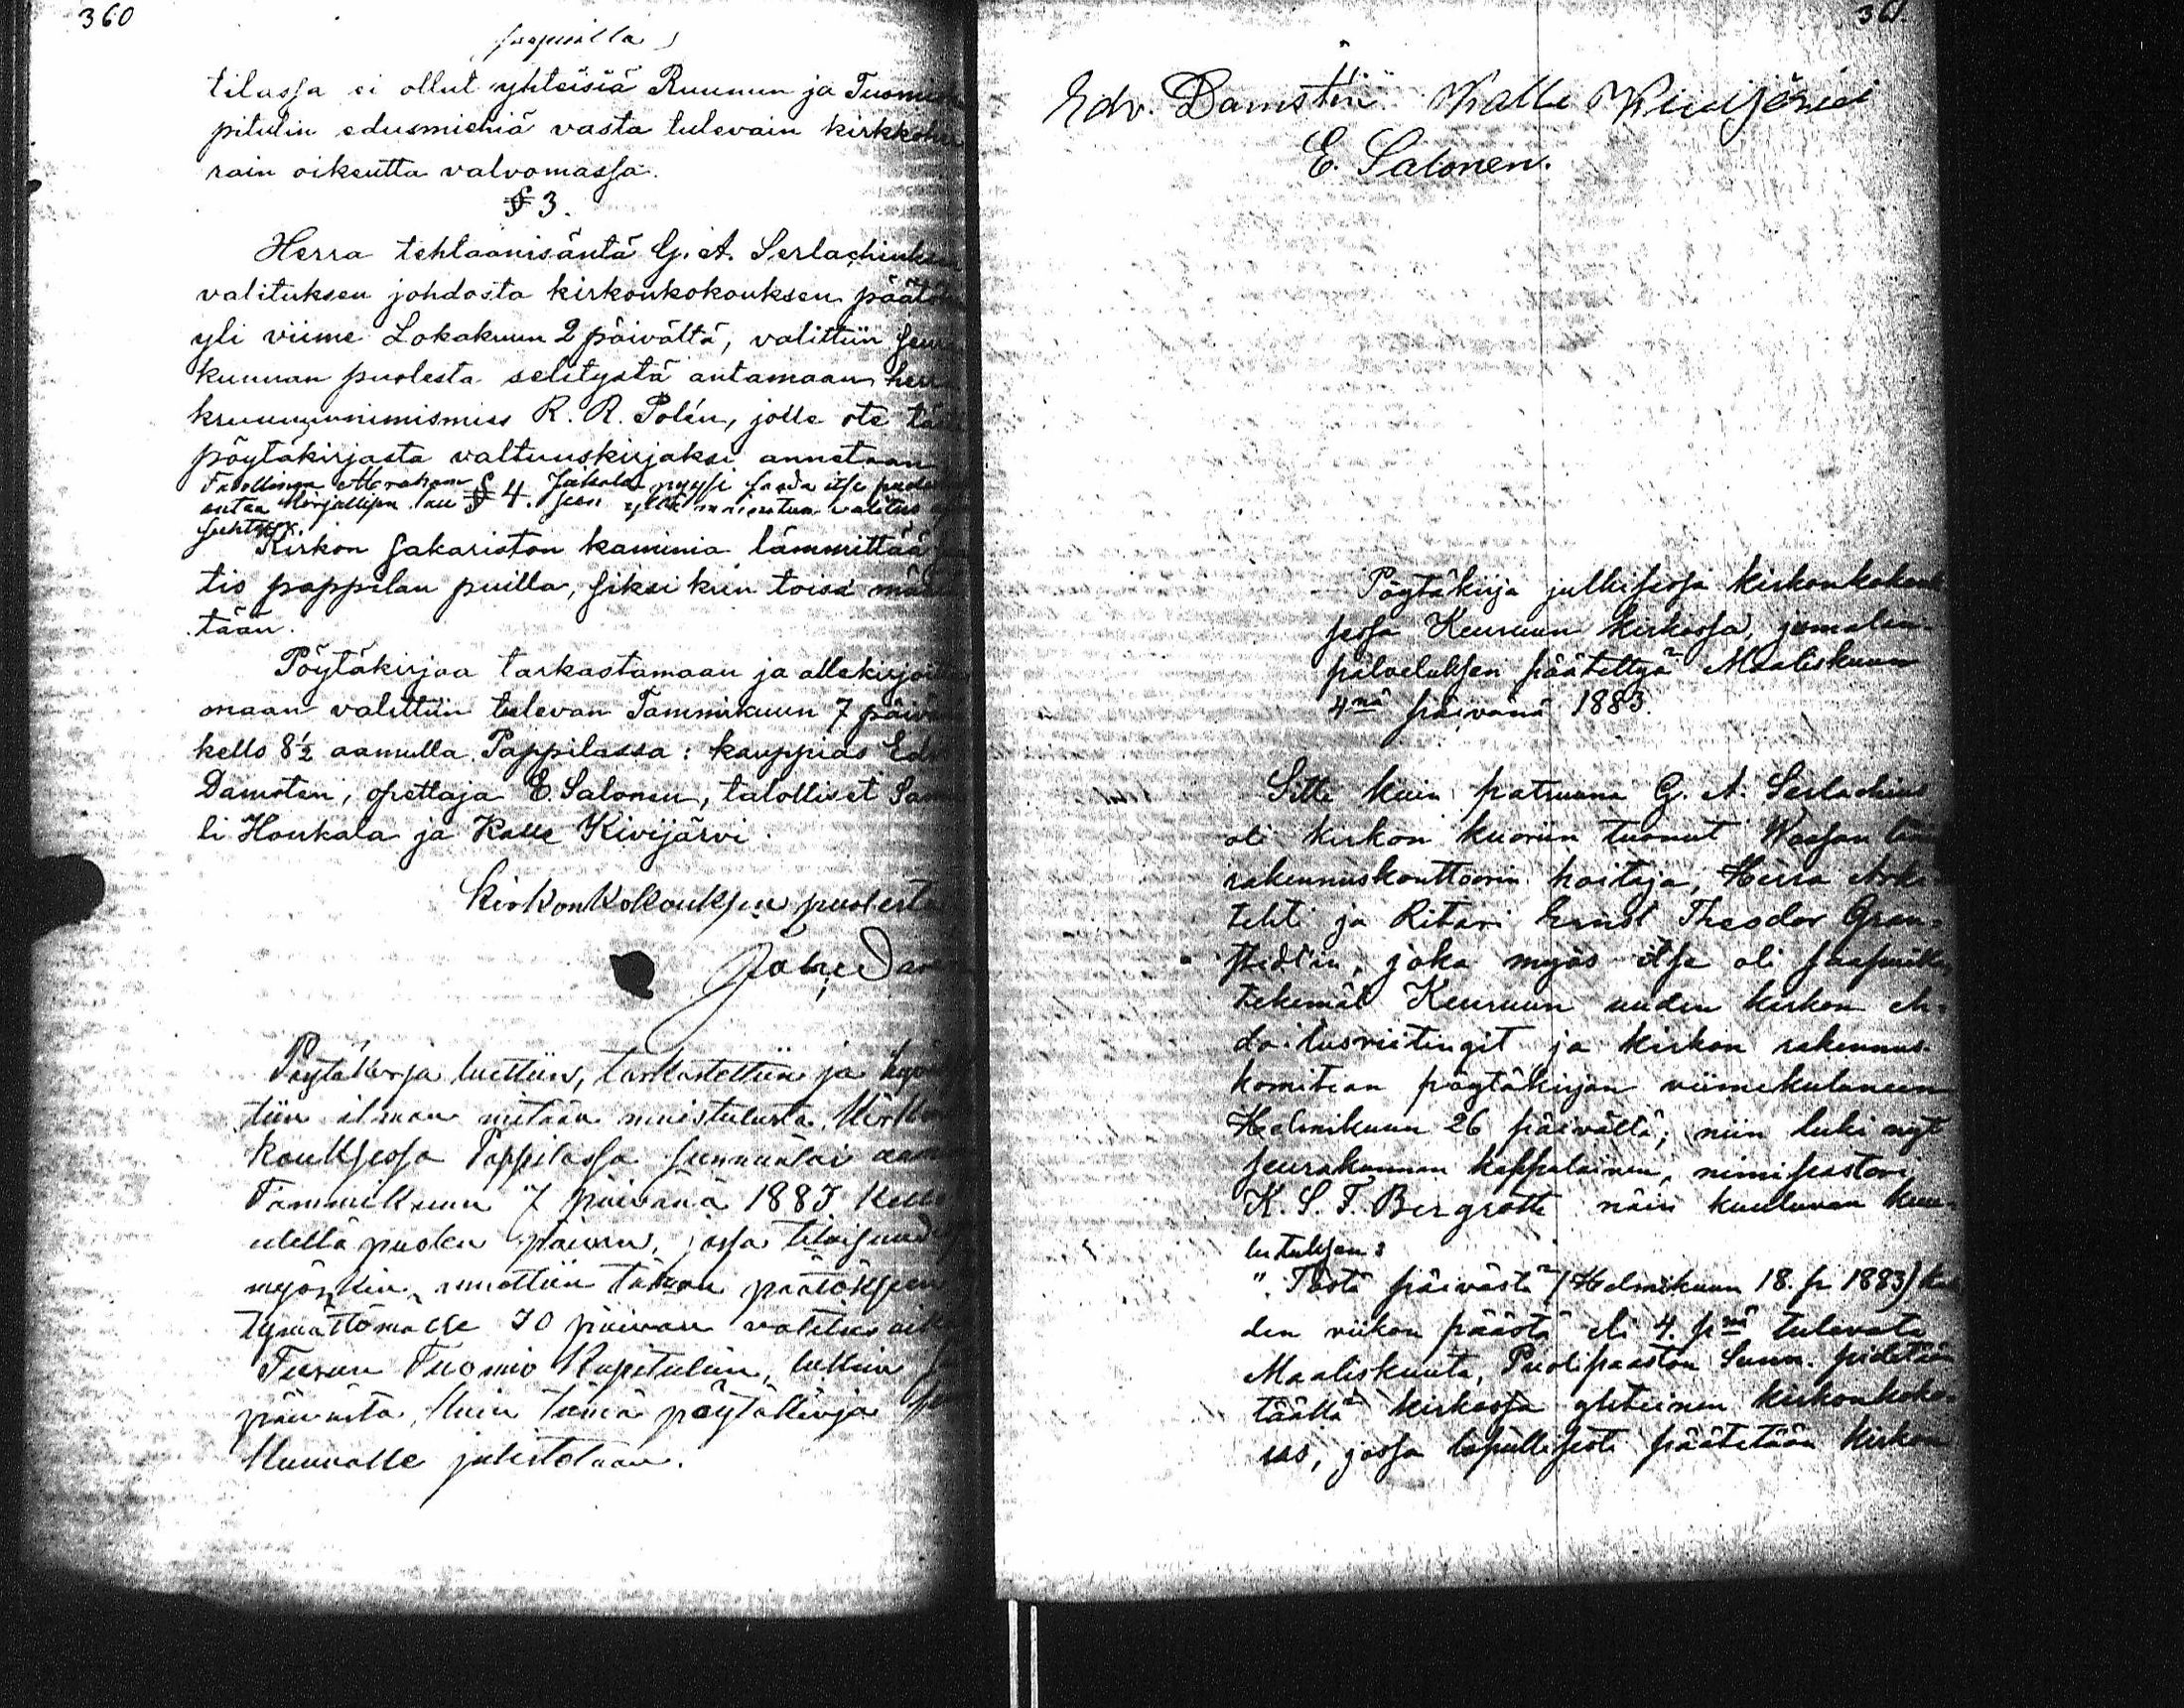 360
saapuvilla
tilassa ei ollut yhteisiä Ruunun ja Tuomio
pitulin edusmiehiä vasta tulevain kirkkohe
rain oikeutta valvomassa.
§ 3.
Herra tehtaanisäntä G. A. Serlachiuksen
valituksen johdosta kirkonkokouksen päätök
yli viime Lokakuun 2 päivältä, valittiin seura
kunnan puolesta selitystä antamaan herr
kruununnimismies R. R. Polén, jolle ote täs
pöytäkirjasta valtuuskirjaksi annetaan
Talollinen Abraham Jukola pyysi saada itse puole
antaa kirjallisen lau § 4. sen yllä mainitun valitus
suhteen.
Kirkon sakariston kaminia lämmittää
tis pappilan puilla, siksi kun toisin määr
tään.
Pöytäkirjaa tarkastamaan ja allekirjoit
maan valittiin tulevan Tammikuun 7 päivä
kello 8½ aamulla Pappilassa: kauppias Edv
Damsten, opettaja E. Salonen, talolliset Sam
li Houkala ja Kalle Kivijärvi.
Kirkonkokouksen puolesta
Pöytäkirja luettiin, tarkastettiin ja hyväk
tiin ilman mitään muistutusta Kirkon
kouksessa Pappilassa sunnuntai aam
Tammikuun 7 päivänä 1883 kello
edellä puolen päivän, jossa tilaisuud
myöskin annettiin tähän päätökseen
tymättömälle 30 päivän valitus aik
Turun Tuomio Kapituliin, lukien
päivästä, kuin tämä pöytäkirja seu
kunnalle julistetaan.
361.
Edv. Damstén Kalle Kivijärvi
E. Salonen.
Pöytäkirja julkisessa kirkonkokouk
sessa Keuruun kirkossa, jumalan-
palveluksen päätettyä Maaliskuun
4nä päivänä 1883.
Sitte kuin patruuna G. A. Serlachius
oli kirkon kuoriin tuonut Waasan lään
rakennuskonttoorin hoitaja, Herra Arki
tehti ja Ritari Ernst Theodor Gran-
stedtin, joka myös itse oli saapuvilla,
tekemät Keuruun uuden kirkon eh-
doitusriitingit ja kirkon rakennus-
komitean pöytäkirjan viimekuluneen
Helmikuun 26 päivältä; niin luki nyt
seurakunnan kappalainen, nimipastori
K. S. F. Bergroth näin kuuluvan kuu-
lutuksen:
"Tästä päivästä (Helmikuun 18. p. 1883) ka
den viikon päästä eli 4. pnä tulevata
Maaliskuuta, Puolipaaston Sunn. pidetään
täällä kirkossa yhteinen kirkonkoko-
us, jossa lopullisesti päätetään kirkon